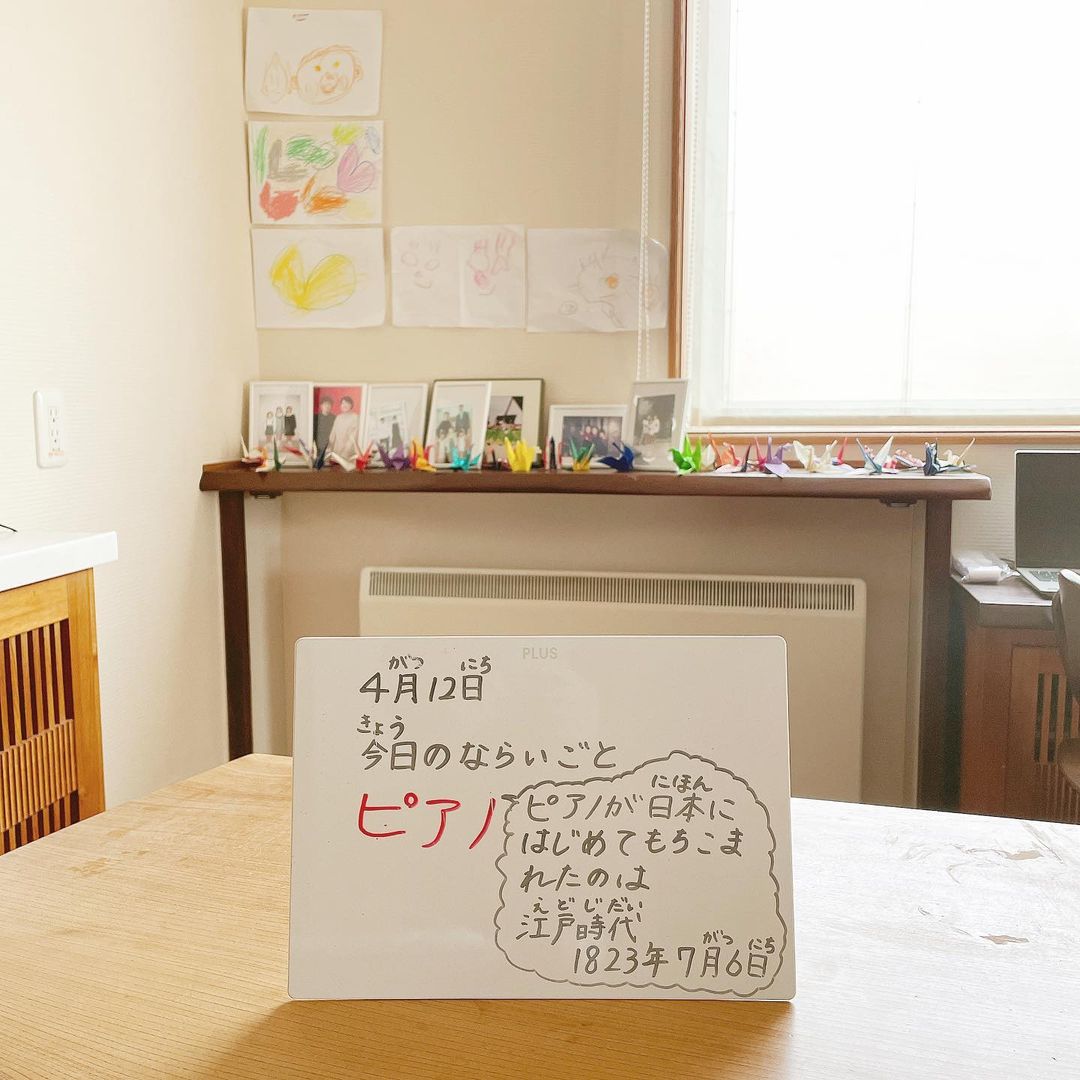 PLUS
がつ にち
4月12日
きょう
今日のならいごと
ピアノ
にほん
ピアノが日本に
はじめてもちこま
れたのは
えどじだい
江戸時代
がつ にち
1823年7月6日